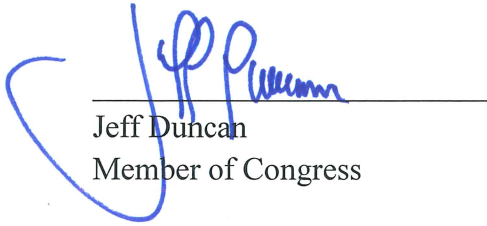 Jeff Duncan
Jeff Duncan
Member of Congress